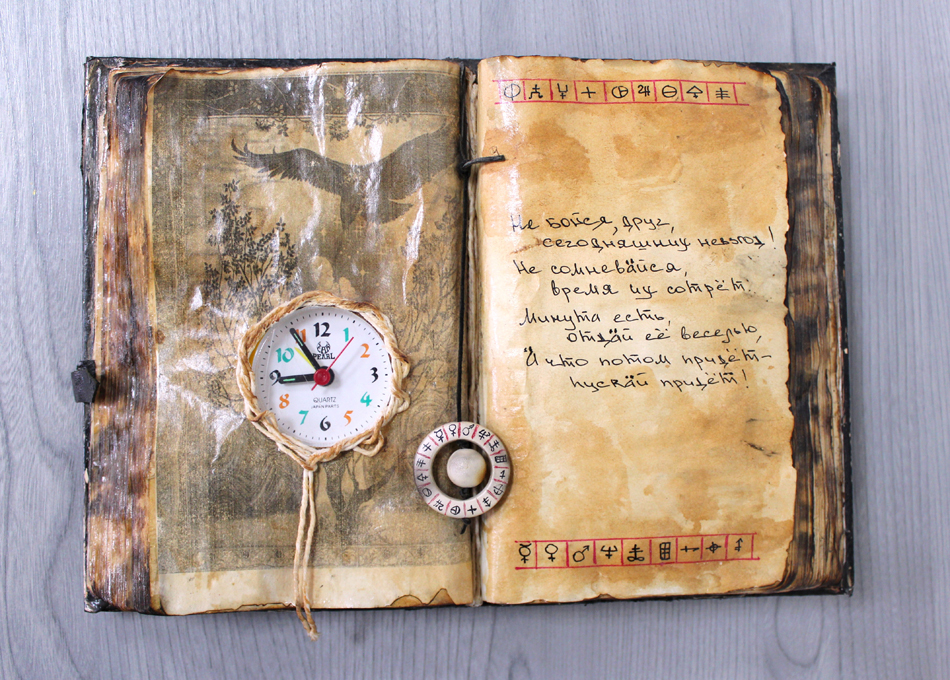 12
1
10
2
PEARL
9
3
8
4
QUARTZ
JAPAN PARTS
7
5
6
Не бойся, друг,
сегодняшних невзгод!
Не сомневайся,
время их сотрёт.
Минута есть,
отдай её веселью,
А что потом придёт-
пускай придёт!